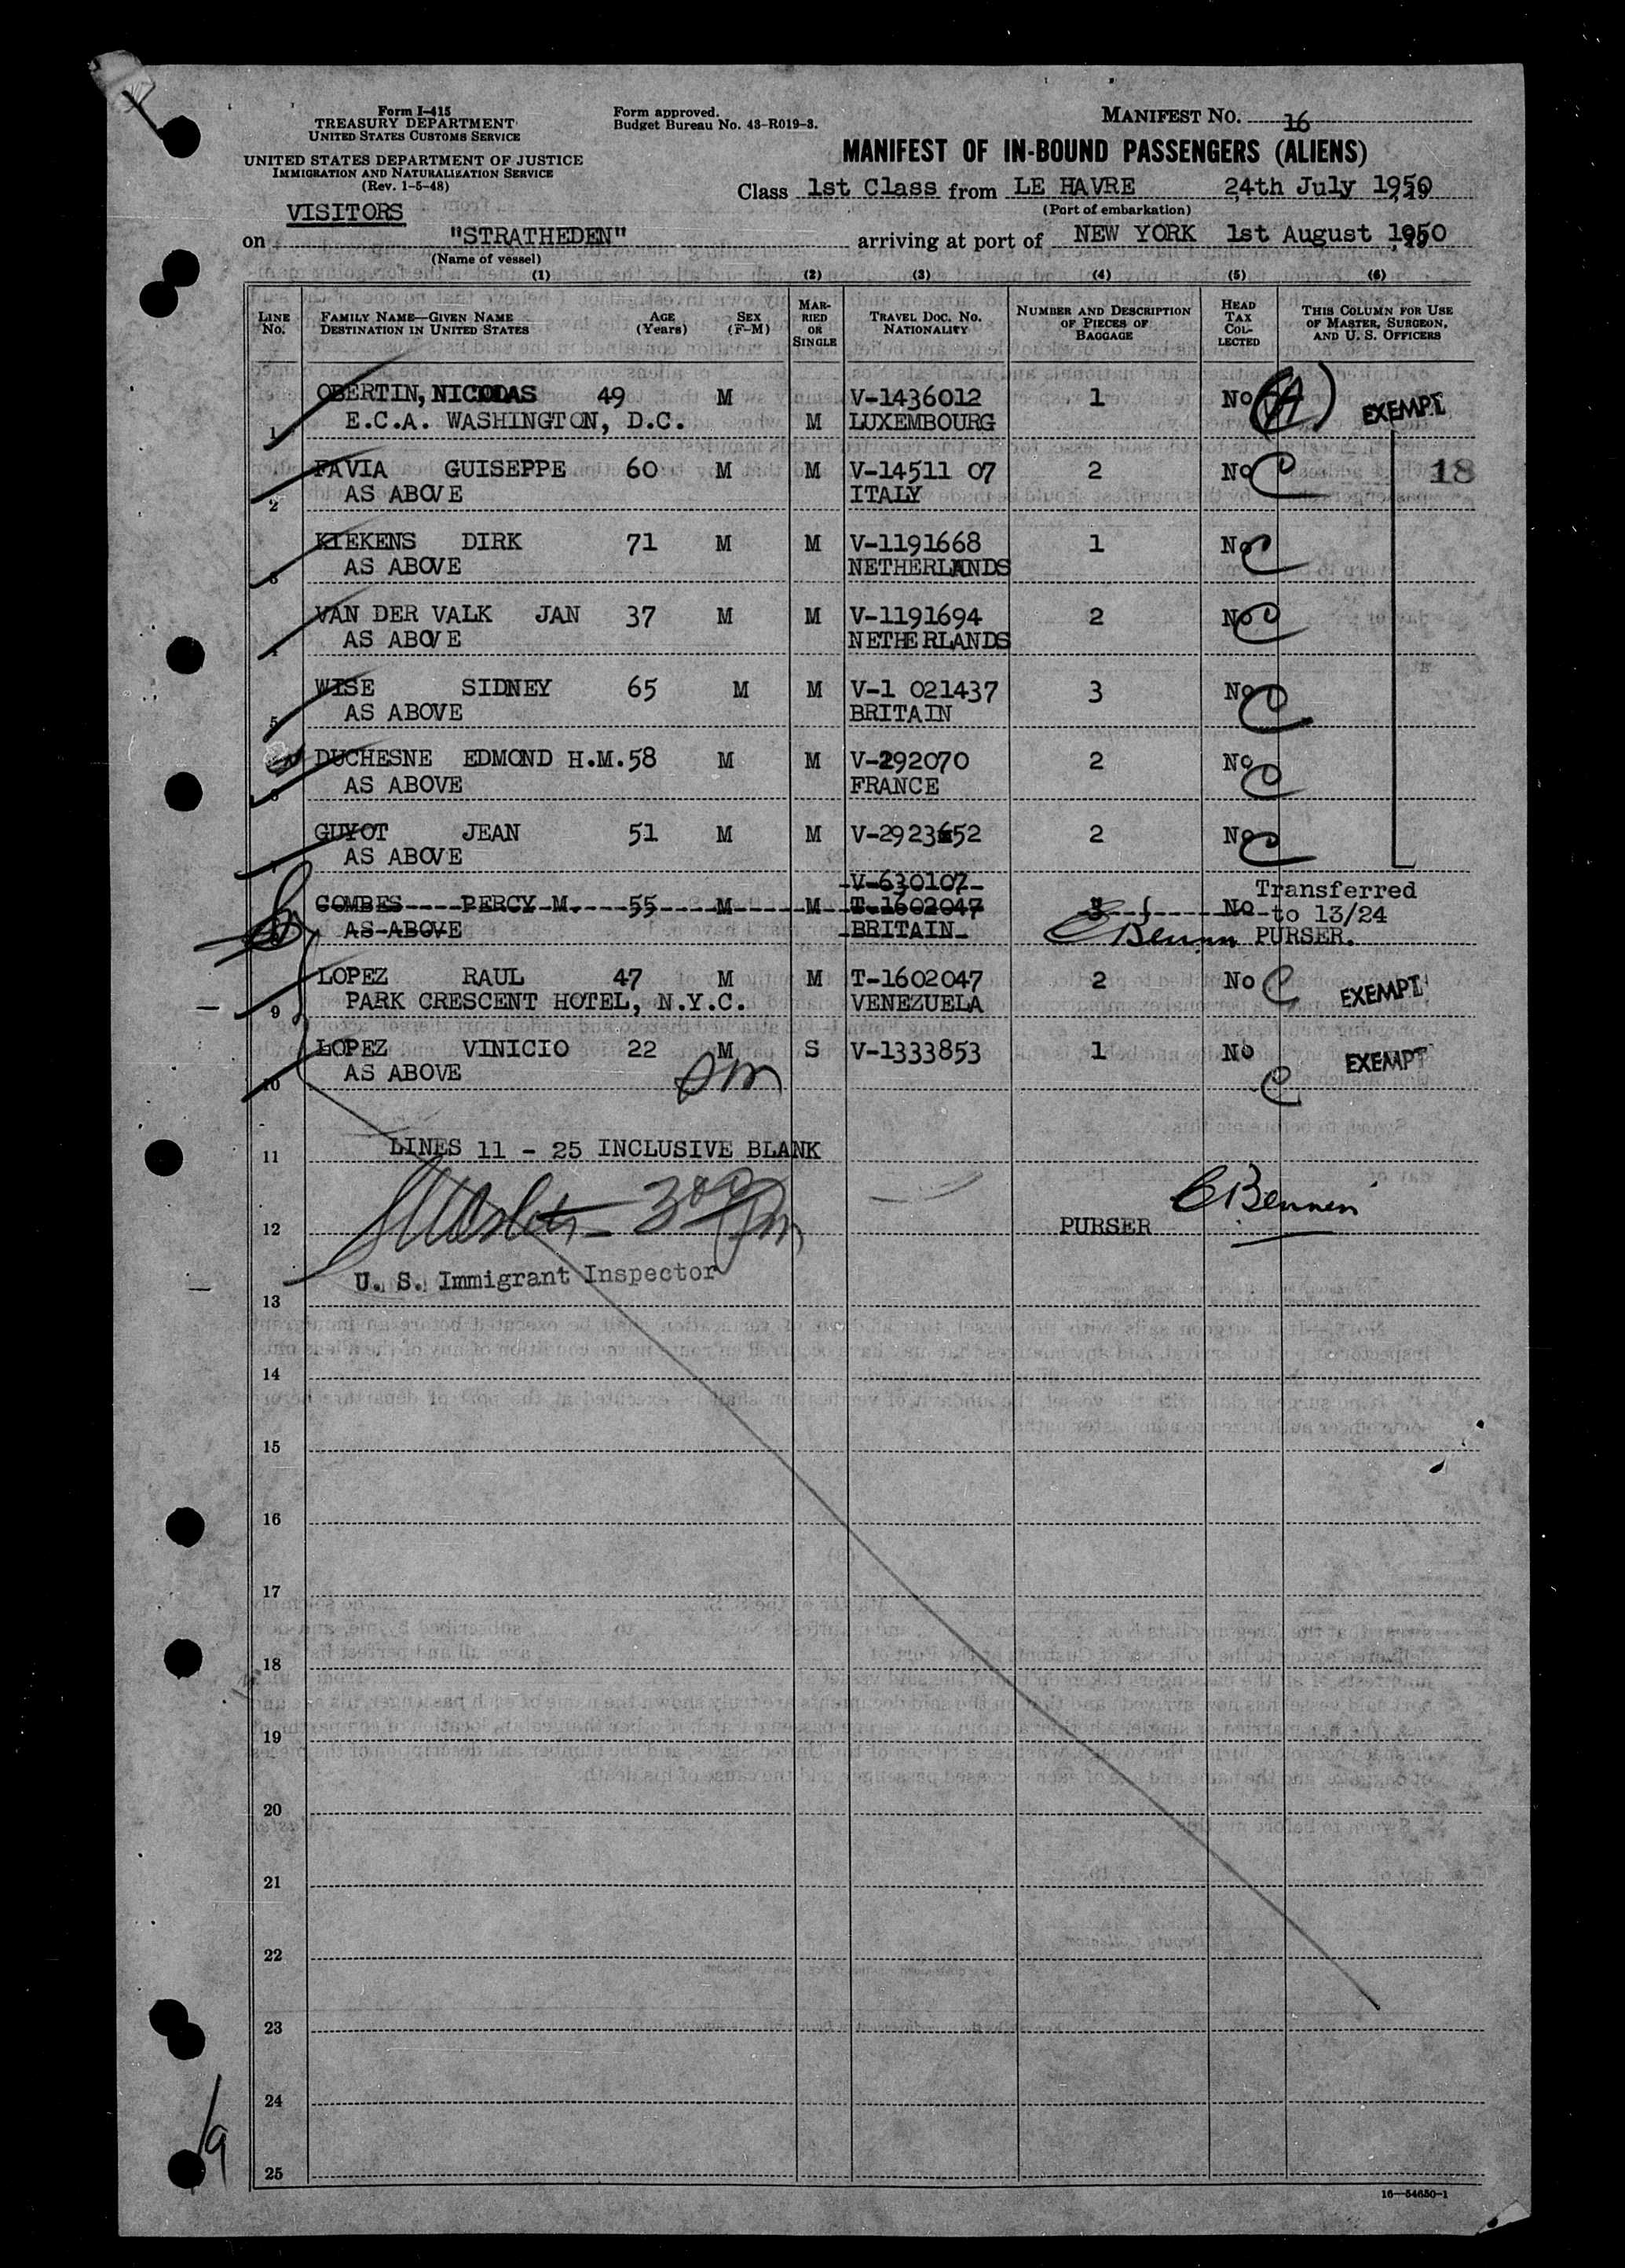 Form I-415
TREASURY DEPARTMENT
UNITED STATES CUSTOMS SERVICE
UNITED STATES DEPARTMENT OF JUSTICE
IMMIGRATION AND NATURALIZATION SERVICE
(Rev. 1-5-48)
Form approved.
Budget Bureau No. 43-R019-3.
MANIFEST NO. 16
MANIFEST OF IN-BOUND PASSENGERS (ALIENS)
Class 1st Class from LE HAVRE 24th July 1950
(Port of embarkation)
VISITORS
on "STRATHEDEN" arriving at port of NEW YORK 1st August 1950
(Name of vessel)
(1) (2) (3) (4) (5) (6)
LINE No. FAMILY NAME—GIVEN NAME DESTINATION IN UNITED STATES AGE (Years) SEX (F-M) MARRIED OR SINGLE TRAVEL DOC. NO. NATIONALITY NUMBER AND DESCRIPTION OF PIECES OF BAGGAGE HEAD TAX COLLECTED THIS COLUMN FOR USE OF MASTER, SURGEON, AND U. S. OFFICERS
OBERTIN, 49 M V-1436012 1 No (A) EXEMPT
1 E.C.A. WASHINGTON, D.C. M LUXEMBOURG
FAVIA GUISEPPE 60 M M V-14511 07 2 No C 18
2 AS ABOVE ITALY
KIEKENS DIRK 71 M M V-1191668 1 No C
3 AS ABOVE NETHERLANDS
VAN DER VALK JAN 37 M M V-1191694 2 No C
4 AS ABOVE NETHERLANDS
WISE SIDNEY 65 M M V-1 021437 3 No C
5 AS ABOVE BRITAIN
DUCHESNE EDMOND H.M. 58 M M V-292070 2 No C
6 AS ABOVE FRANCE
GUYOT JEAN 51 M M V-2923652 2 No C
7 AS ABOVE
V-630107 Transferred
COMBES PERCY M. 55 M M T-1602047 3 No to 13/24
AS ABOVE BRITAIN CBennen PURSER.
LOPEZ RAUL 47 M M T-1602047 2 No C EXEMPT
9 PARK CRESCENT HOTEL, N.Y.C. VENEZUELA
LOPEZ VINICIO 22 M S V-1333853 1 No C EXEMPT
10 AS ABOVE
11 LINES 11 - 25 INCLUSIVE BLANK
12 PURSER CBennen
U. S. Immigrant Inspector
13
14
15
16
17
18
19
20
21
22
23
24
25
19
16—54650-1